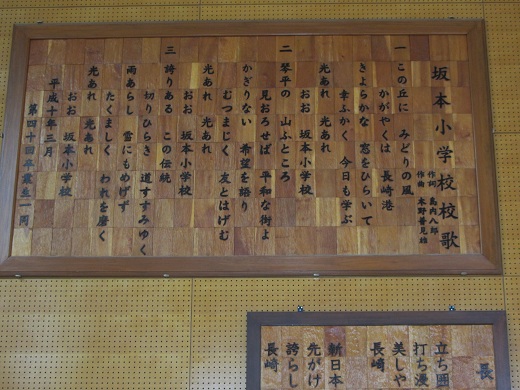 坂本小学校校歌
作詞 島内八郎
作曲 木野普見雄
一 この丘に みどりの風
かがやくは 長崎港
きよらかな 窓をひらいて
幸ふかく 今日も学ぶ
光あれ 光あれ
おお 坂本小学校
二 琴平の 山ふところ
見おろせば 平和な街よ
かぎりない 希望を語り
むつまじく 友とはげむ
光あれ 光あれ
おお 坂本小学校
三 誇りある この伝統
切りひらき 道すすみゆく
雨あらし 雪にもめげず
たくましく われを磨く
光あれ 光あれ
おお 坂本小学校
平成十年三月
第四十回卒業生一同
長
立ち囲
打ち湊
美しや
長崎
新日本
先がけ
誇らし
長崎